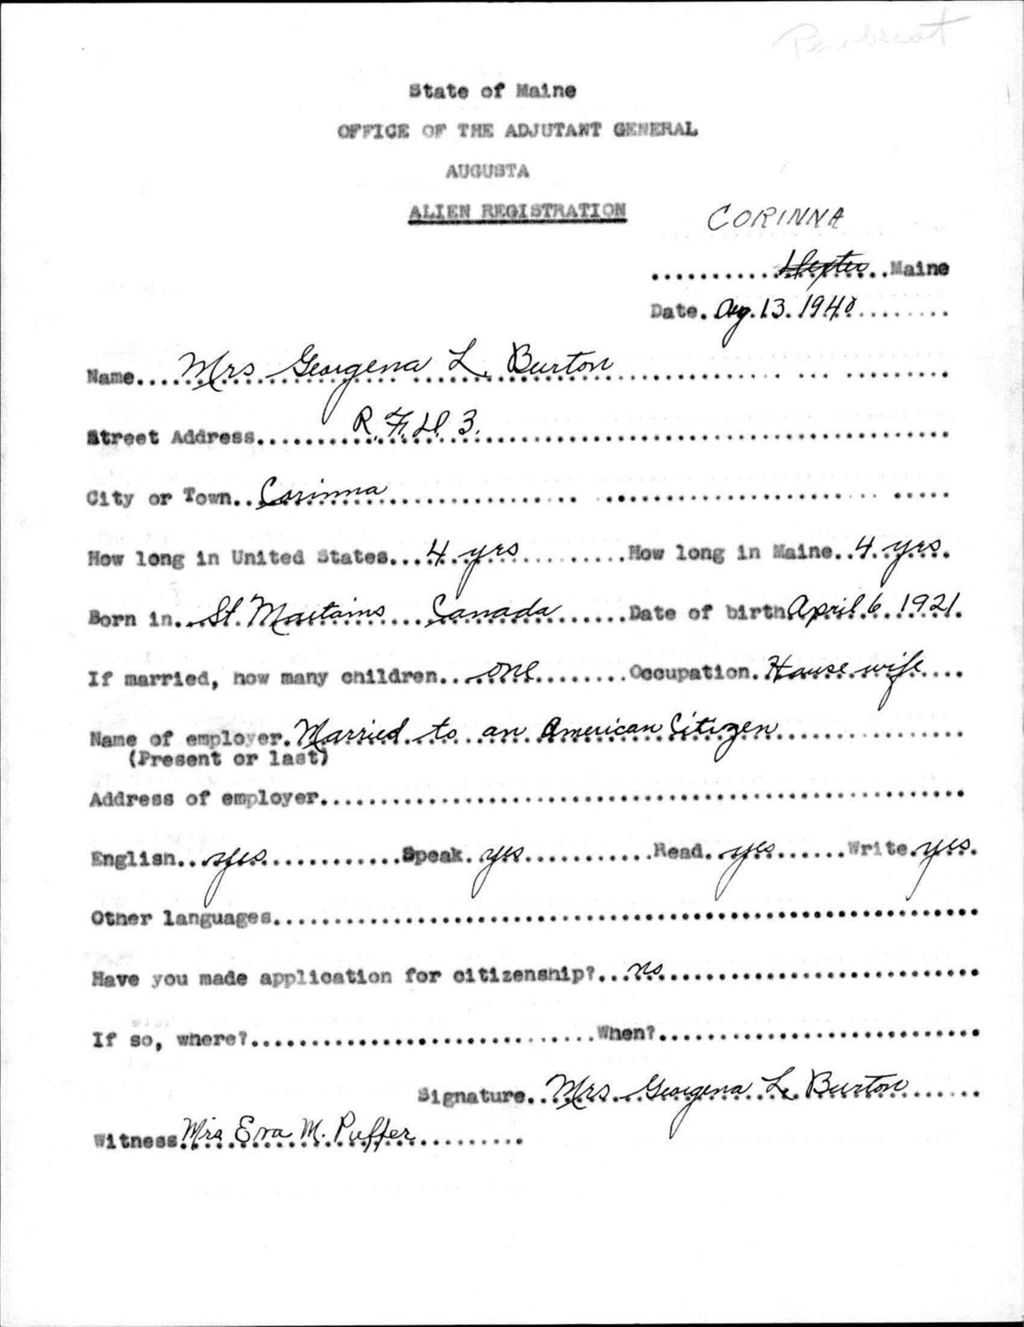 Penobscot
State of Maine
OFFICE OF THE ADJUTANT GENERAL
AUGUSTA
ALIEN REGISTRATION
CORINNA
...........Dexter..Maine
Date.Aug.13.1940.........
Name....Mrs Georgena L. Burton.........
Street Address........R.F.D 3.........
City or Town..Corinna.........
How long in United States...4 yrs.........How long in Maine..4 yrs.
Born in...St. Martains....Canada.......Date of birth April 6, 1921.
If married, how many children...one........Occupation.House wife....
Name of employer.Married to an American Citizen.........
(Present or last)
Address of employer.........
English..yes............Speak.yes............Read.yes.......Write.yes.
Other languages.........
Have you made application for citizenship?...no.........
If so, where?.........When?.........
Signature..Mrs. Georgena L. Burton.......
Witness Mrs Eva M. Puffer.........